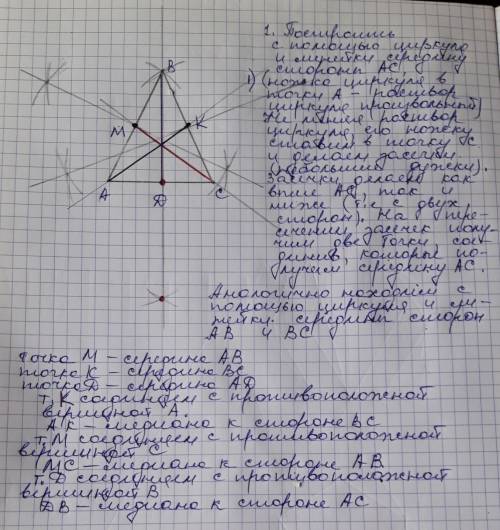 1. Построить
с помощью циркуля
и линейки середину
стороны AC,
1) (ножка циркуля в
точки A - (раствор
циркуля произвольный)
Не меняя раствор
циркуля, его ножку
ставим в точку C
и делаем засечки
(небольшие дужки).
Засечки делаем как
выше AC, так и
ниже (т.е с двух
сторон). На пере-
сечении засечек полу-
чим две точки, сое-
динив, которые по-
лучаем середину AC.
Аналогично находим с
помощью циркуля и ли-
нейки середины сторон
AB и BC
B
M
K
A
D
C
точка M - середина AB
точка K - середина BC
точка D - середина AD
т. K соединяем с противоположной
вершиной A.
AK - медиана к стороне BC
т. M соединяем с противоположной
вершиной C
MC - медиана к стороне AB
т. D соединяем с противоположной
вершиной B
DB - медиана к стороне AC